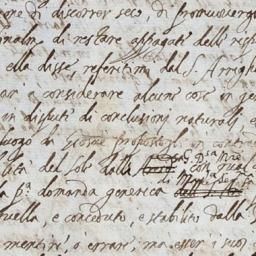 one di discorrer seco, di promuovergli
nalm.te di restare appagata delle risp
ella disse, referitimi dal S. Arrighe
nar a considerare alcune cose in ge
in dispute di conclusioni naturali e
luogo di Giosue propostoli, in contrad
bilità del Sole dalla
la p.a domanda generica
quella, e conceduto, e stabilito dalla
mentire, o errare, ma esser i suoi